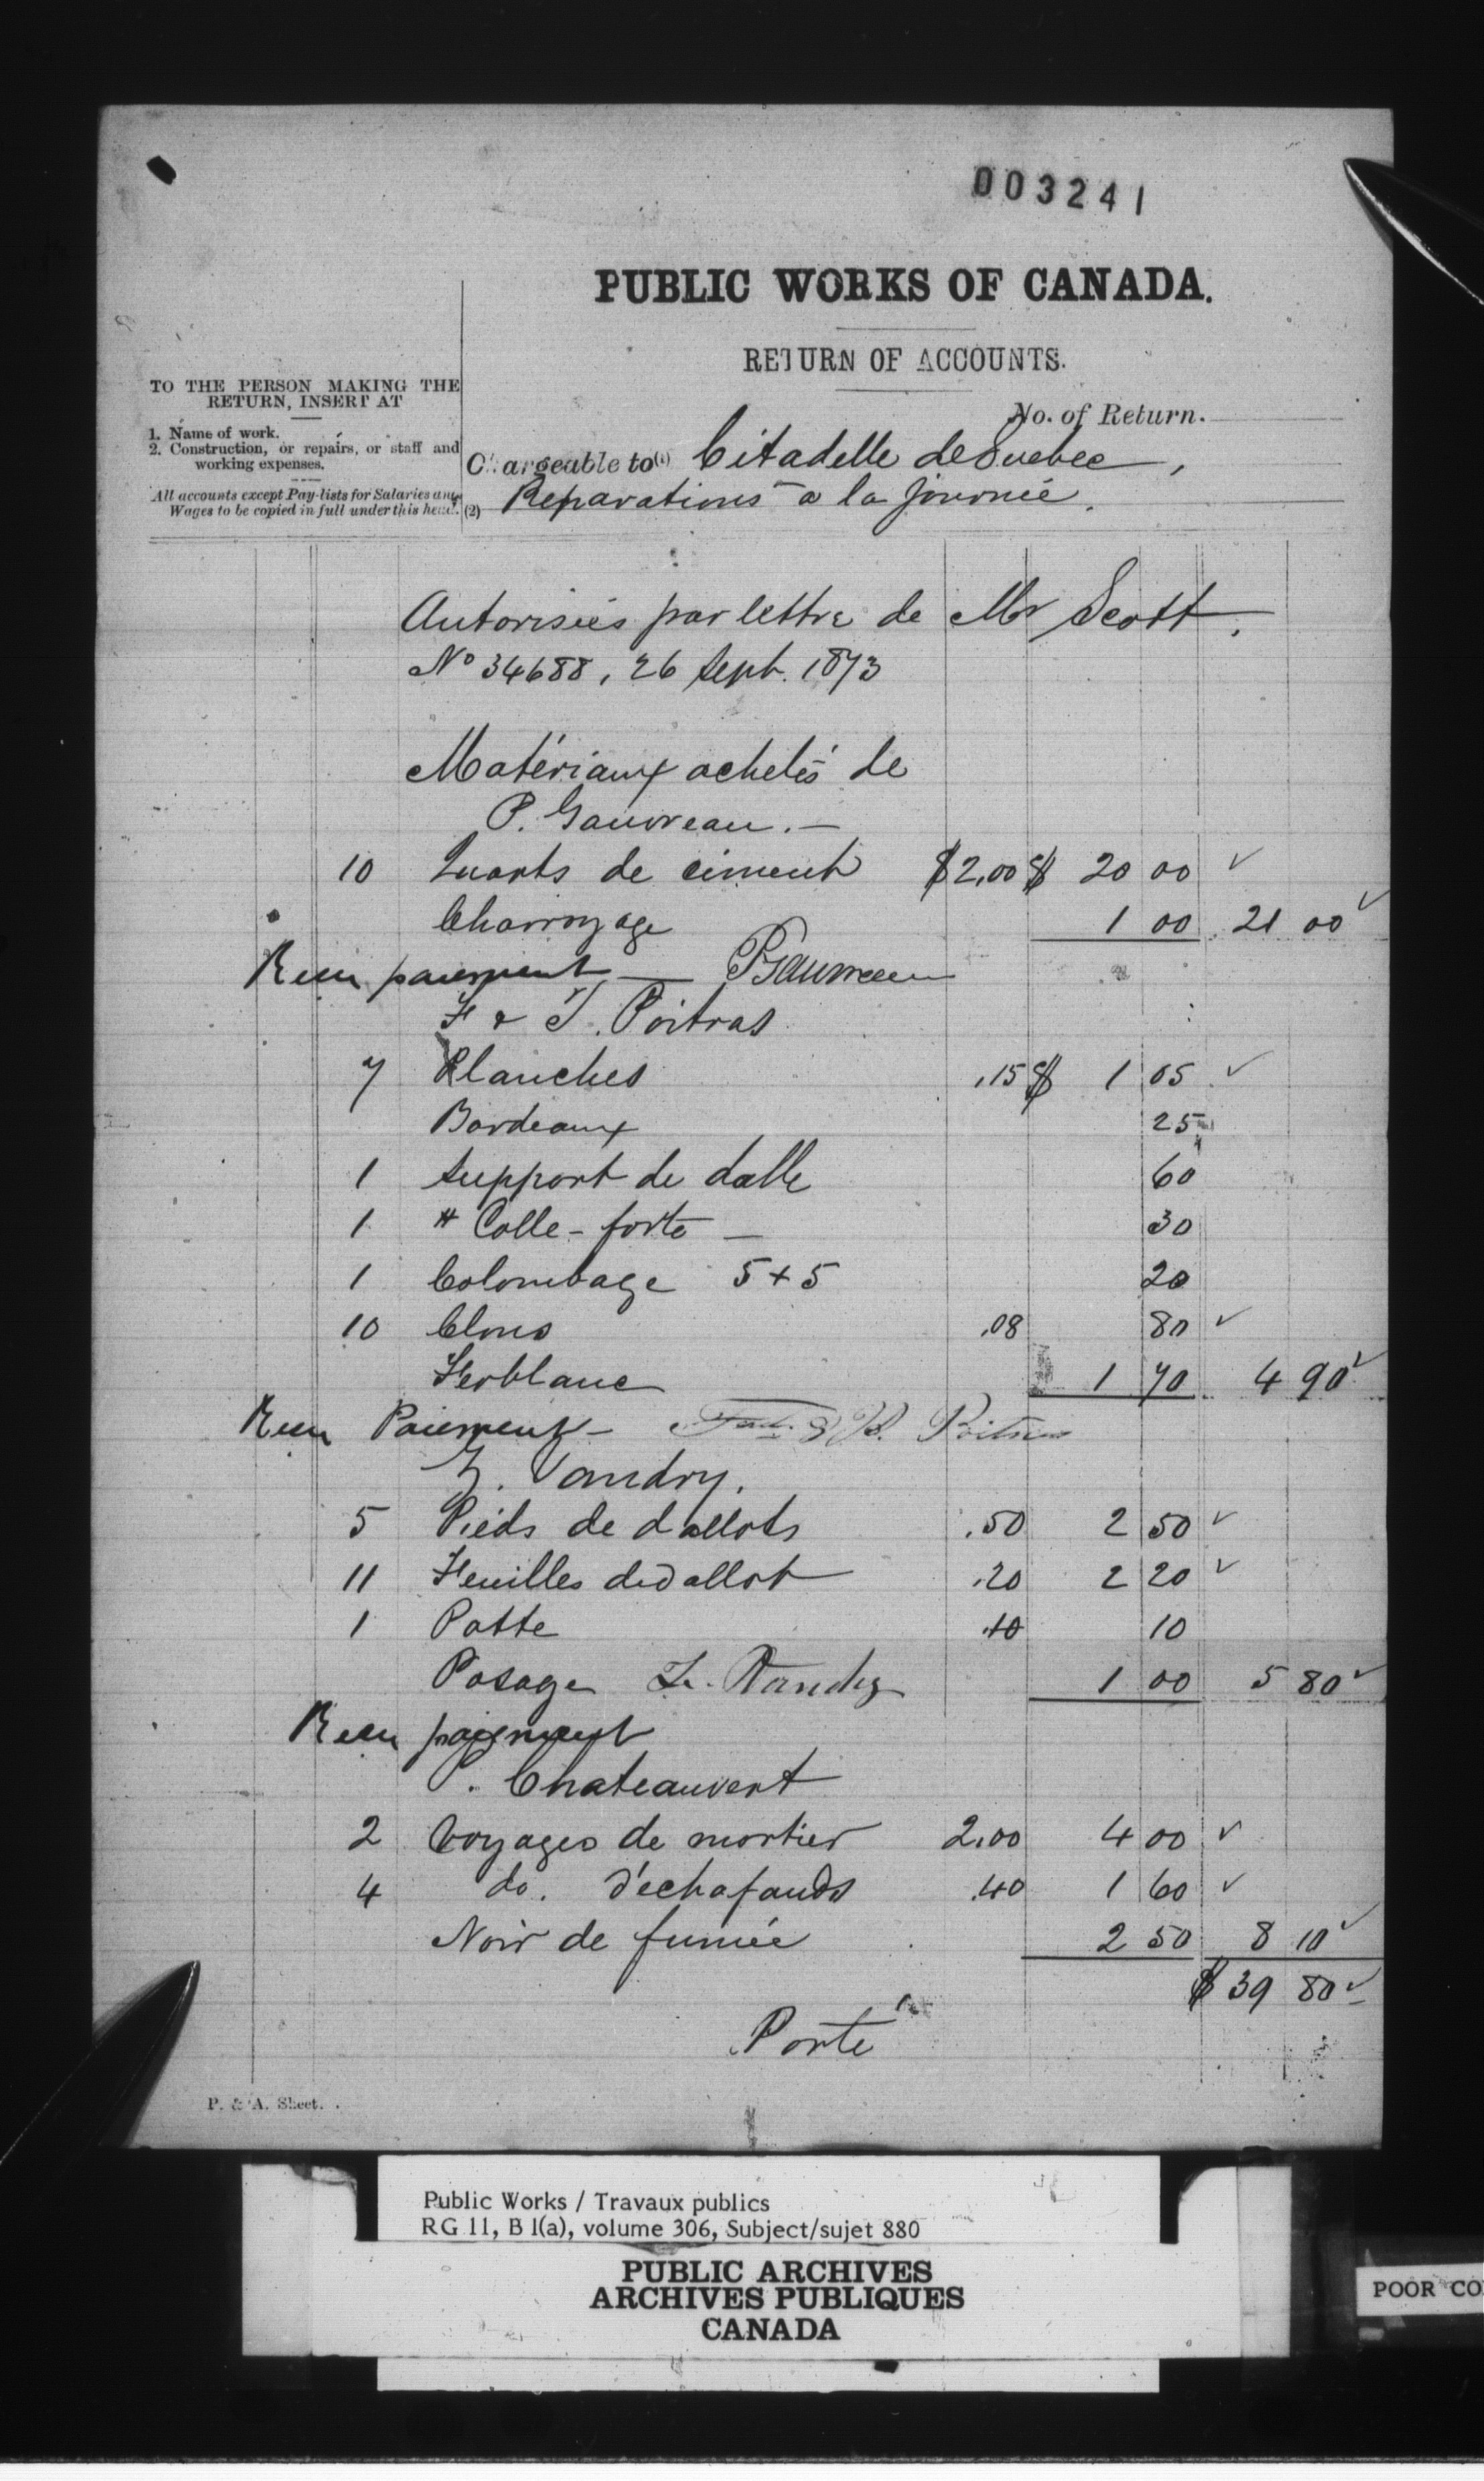 003241
PUBLIC WORKS OF CANADA.
RETURN OF ACCOUNTS.
TO THE PERSON MAKING THE
RETURN, INSERT AT
1. Name of work.
2. Construction, or repairs, or staff and
working expenses.
All accounts except Pay-lists for Salaries any
Wages to be copied in full under this head.
No. of Return.
Chargeable to (1) Citadelle de Quebec,
(2) Reparations a la journée.
Autorisées par lettre de Mr Scott.
No 34688, 26 Sept. 1873
Matériaux achetés de
P. Gauvreau. —
10 Quarts de ciment $2,00 $ 20 00 ✓
Charroyage 1 00 21 00 ✓
Recu paiement — P Gauvreau
F & J. Poitras
7 Planches .15 $ 1 05 ✓
Bardeaux 25
1 Support de dalle 60
1 # Colle-forte — 30
1 Colombage 5+5 20
10 Clous .08 80 ✓
Ferblanc 1 70 4 90 ✓
Recu Paiement — Poitras
Z. Vandry.
5 Pieds de dallots .50 2 50 ✓
11 Feuilles de dallot .20 2 20 ✓
1 Patte .10 10
Posage Z. Vandry 1 00 5 80 ✓
Recu paiement
P. Chateauvert
2 Voyages de mortier 2.00 4 00 ✓
4 do. d'échafauds .40 1 60 ✓
Noir de fumée 2 50 8 10 ✓
$ 39 80 ✓
Porté
P. & A. Sheet.
Public Works / Travaux publics
RG 11, B 1(a), volume 306, Subject/sujet 880
PUBLIC ARCHIVES
ARCHIVES PUBLIQUES
CANADA
POOR CO